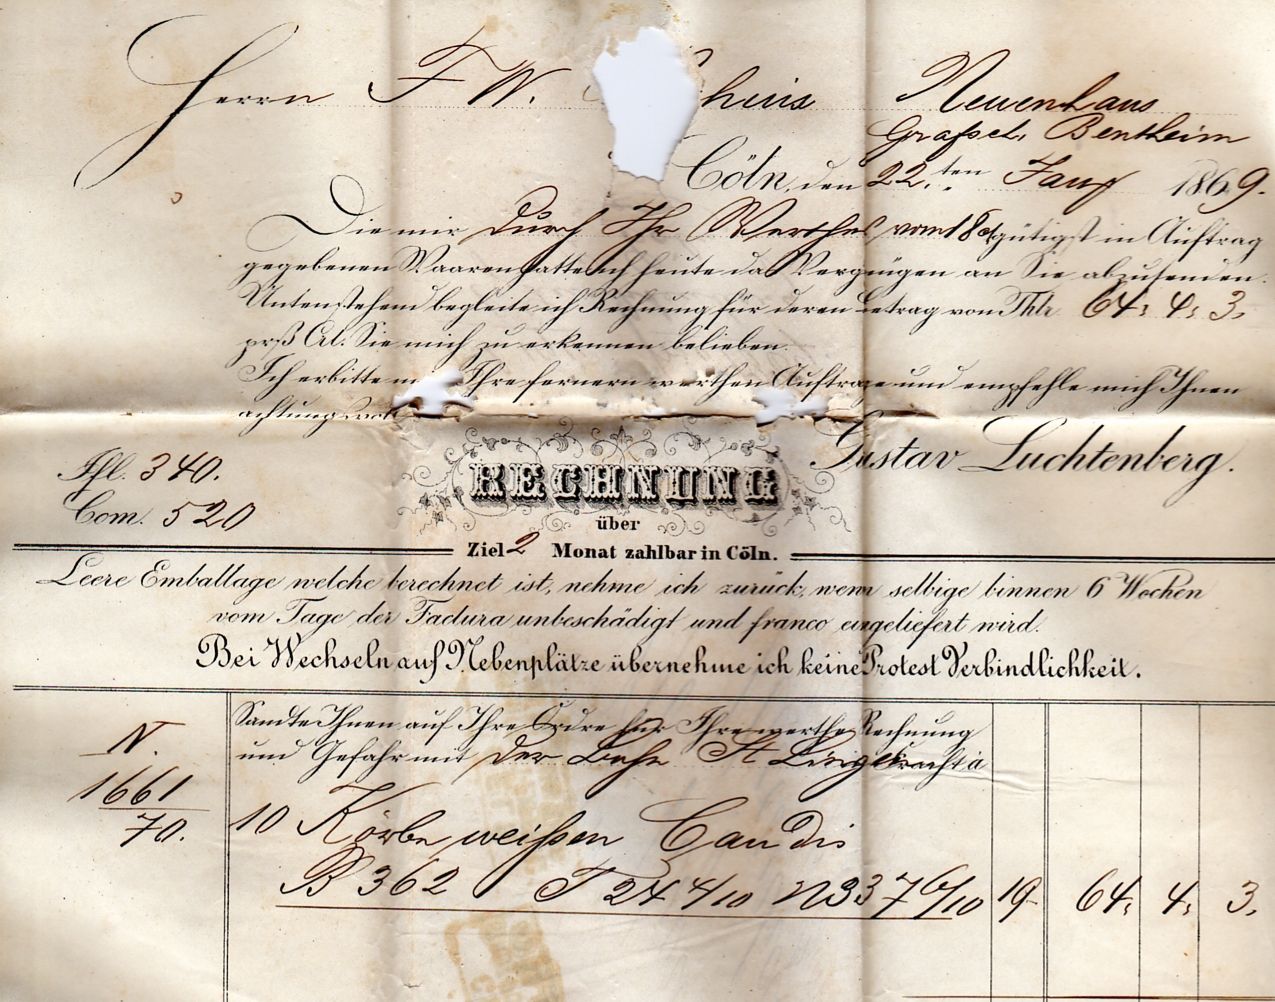 Herrn F W. Neuenhaus
Grafsch. Bentheim
Cöln, den 22.ten 1869.
Die mir durch Ihr Werthes vom 18 gütigst in Auftrag
gegebenen Waaren hatte ich heute das Vergnügen an Sie abzusenden.
Untenstehend begleite ich Rechnung für deren Betrag von Thlr 64: 4: 3.
Sie mich zu erkennen belieben.
Ich erbitte Ihre fernern werthen Aufträge und empfehle mich Ihnen
achtungsvoll
Gustav Luchtenberg.
Fol. 340.
Com. 520
RECHNUNG
über
Ziel 2 Monat zahlbar in Cöln.
Leere Emballage welche berechnet ist, nehme ich zurück, wenn selbige binnen 6 Wochen
vom Tage der Factura unbeschädigt und franco eingeliefert wird.
Bei Wechseln auf Nebenplätze übernehme ich keine Protest Verbindlichkeit.
Sandte Ihnen auf Ihre Ordre für Ihre werthe Rechnung
und Gefahr mit der Bahn à
N.
1661
70.
10 Körbe weißen Candis
B 362 T 24 4/10 N 337 6/10 19 64: 4: 3.